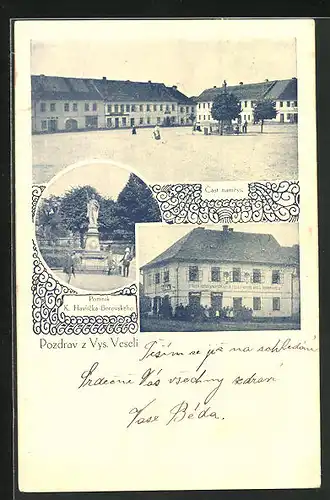 Část náměstí.
Pomník
K. Havlíčka-Borovského
Pozdrav z Vys. Veselí
Těším se již na schledání
Srdečně Vás všechny zdraví
Vaše Béda.